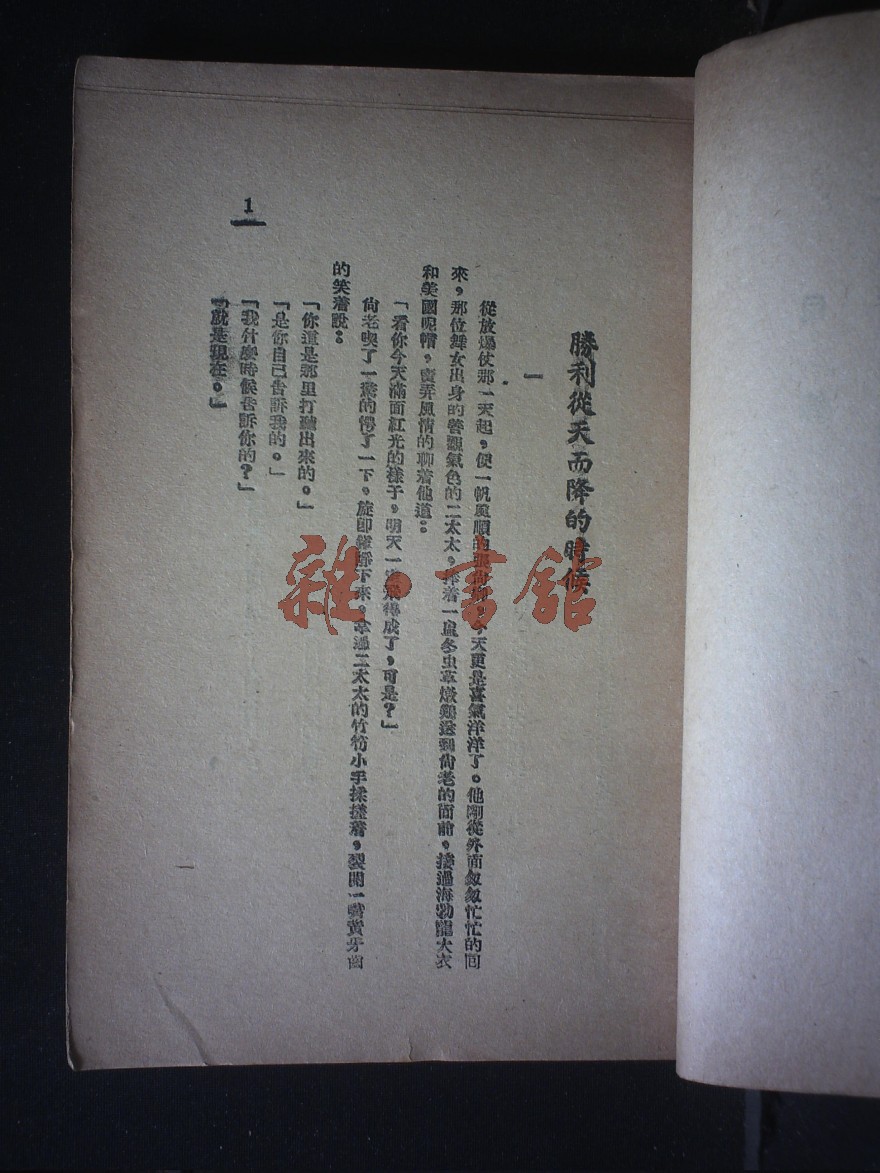 勝利從天而降的時候
一
從放爆仗那一天起，便一帆風順的張尙卿，今天更是喜氣洋洋了。他剛從外面匆匆忙忙的回
來，那位舞女出身的善觀氣色的二太太，捧着一盅冬虫草燉鷄送到尙老的面前，接過海勃龍大衣
和美國呢帽，賣弄風情的聊着他道：
「看你今天滿面紅光的樣子，明天一定飛得成了，可是？」
尙老喫了一驚的愕了一下，旋卽鎭靜下來，拿過二太太的竹笋小手揉搓着，裂開一嘴黄牙齒
的笑着說：
「你這是那里打聽出來的。」
「是你自己告訴我的。」
「我什麽時候告訴你的？」
「就是現在。」
1
一
雜·書館